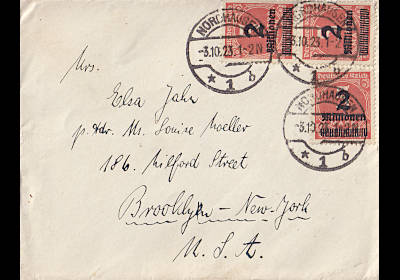 NORDHAUSEN
-3.10.23.1-2N
* 1 b
2
Millionen
NORDHAUSEN
-3.10.23.1-2N
* 1 b
2
Millionen
Deutsches Reich
NORDHAUSEN
-3.10.23.1-2N
* 1 b
2
Millionen
Mrs.
Elsa Jahn
p. adr. Mr. Louise Moeller
186. Milford Street
Brooklyn - New-York
U. S. A.